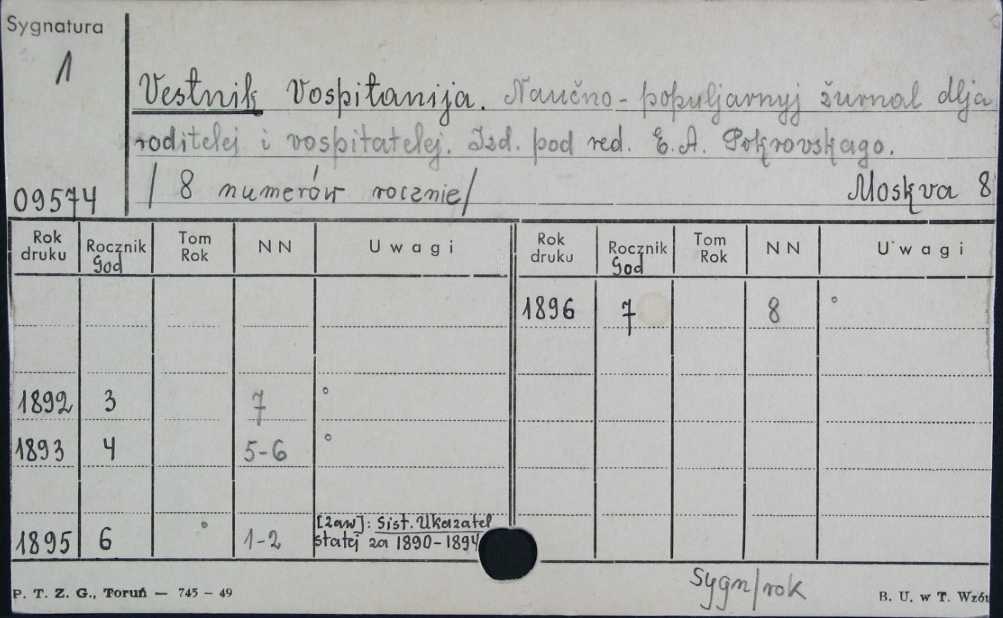 Sygnatura
1
Vestnik Vospitanija. Naučno-populjarnyj žurnal dlja
roditelej i vospitatelej. Izd. pod red. E. A. Pokrovskago.
09574
/ 8 numerów rocznie/
Moskva 8
Rok druku Rocznik God Tom Rok NN Uwagi Rok druku Rocznik God Tom Rok NN Uwagi
1896 7 8 °
1892 3 7 °
1893 4 5-6 °
1895 6 ° 1-2 [zaw]: Sist. Ukazatel
statej za 1890-1894
Sygn/rok
P. T. Z. G., Toruń — 745 – 49
B. U. w T. Wzó